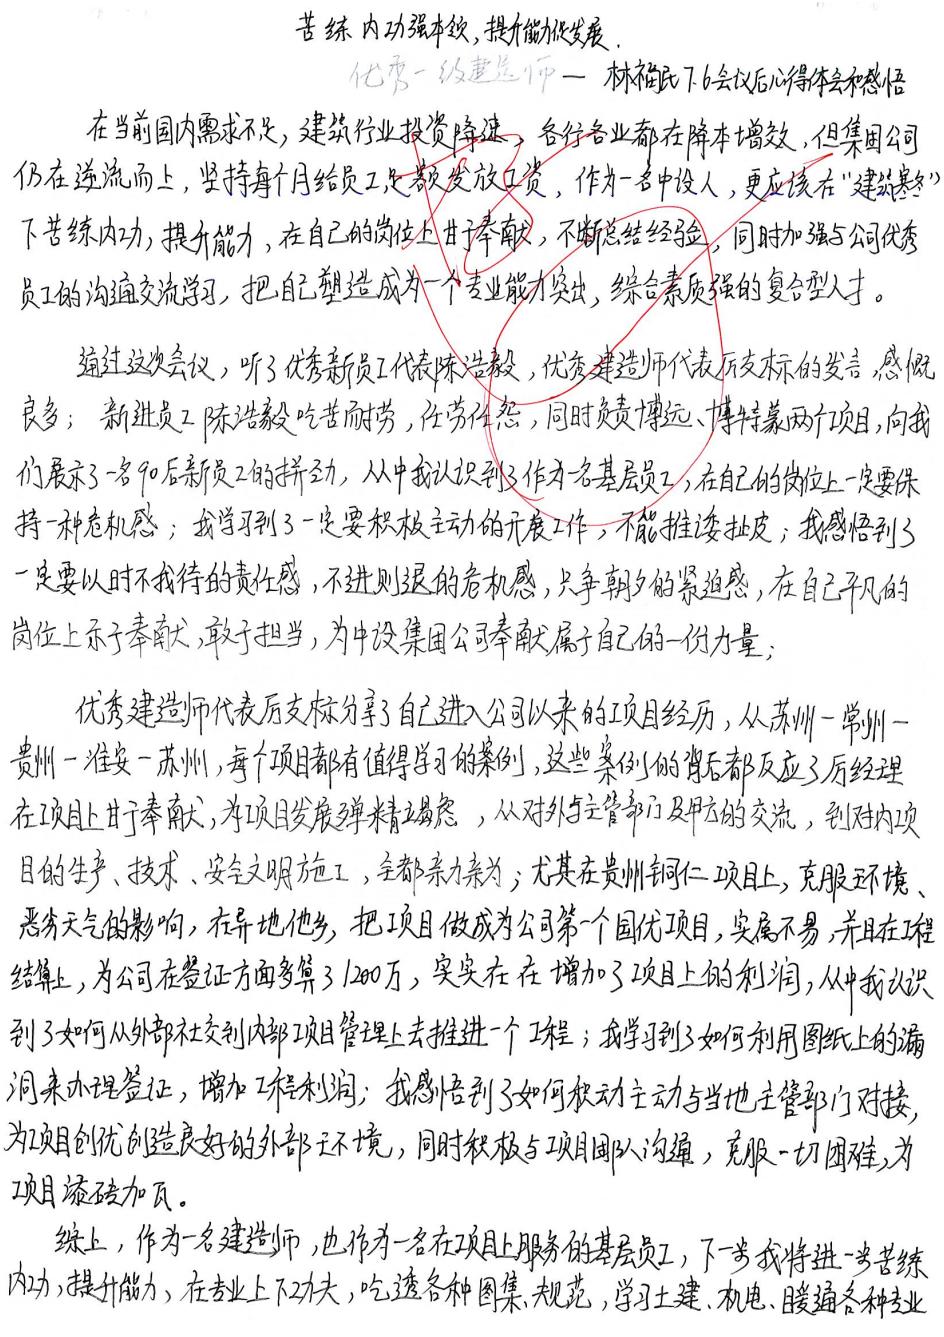 苦练内功强本领,提升能力促发展.
优秀一级建造师 — 林福民7.6会议后心得体会和感悟
在当前国内需求不足,建筑行业投资降速,各行各业都在降本增效,但集团公司
仍在逆流而上,坚持每个月给员工足额发放工资,作为一名中设人,更应该在“建筑寒冬”
下苦练内功,提升能力,在自己的岗位上甘于奉献,不断总结经验,同时加强与公司优秀
员工的沟通交流学习,把自己塑造成为一个专业能力突出,综合素质强的复合型人才。
通过这次会议,听了优秀新员工代表陈浩毅,优秀建造师代表厉支标的发言,感慨
良多;新进员工陈浩毅吃苦耐劳,任劳任怨,同时负责博远、博特蒙两个项目,向我
们展示了一名90后新员工的拼劲,从中我认识到了作为一名基层员工,在自己的岗位上一定要保
持一种危机感;我学习到了一定要积极主动的开展工作,不能推诿扯皮;我感悟到了
一定要以时不我待的责任感,不进则退的危机感,只争朝夕的紧迫感,在自己平凡的
岗位上乐于奉献,敢于担当,为中设集团公司奉献属于自己的一份力量;
优秀建造师代表厉支标分享了自己进入公司以来的项目经历,从苏州一常州一
贵州一淮安一苏州,每个项目都有值得学习的案例,这些案例的背后都反应了厉经理
在项目上甘于奉献,为项目发展殚精竭虑,从对外与主管部门及甲方的交流,到对内项
目的生产、技术、安全文明施工,全都亲力亲为;尤其在贵州铜仁项目上,克服环境、
恶劣天气的影响,在异地他乡,把项目做成为公司第一个国优项目,实属不易,并且在工程
结算上,为公司在签证方面多算了1200万,实实在在增加了项目上的利润,从中我认识
到了如何从外部社交到内部项目管理上去推进一个工程;我学习到了如何利用图纸上的漏
洞来办理签证,增加工程利润;我感悟到了如何积动主动与当地主管部门对接,
为项目创优创造良好的外部环境,同时积极与项目团队沟通,克服一切困难,为
项目添砖加瓦。
综上,作为一名建造师,也作为一名在项目上服务的基层员工,下一步我将进一步苦练
内功,提升能力,在专业上下功夫,吃透各种图集、规范,学习土建、机电、暖通各种专业